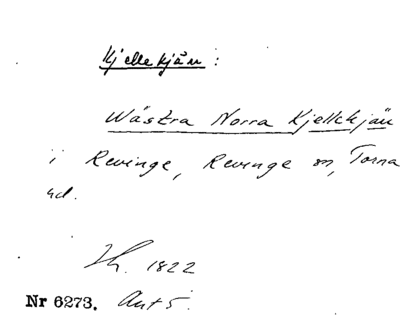 Kjellekjärr:
Wästra Norra Kjellekjärr
i Revinge, Revinge sn, Torna
hd.
1822
Nr 6273. Akt 5.